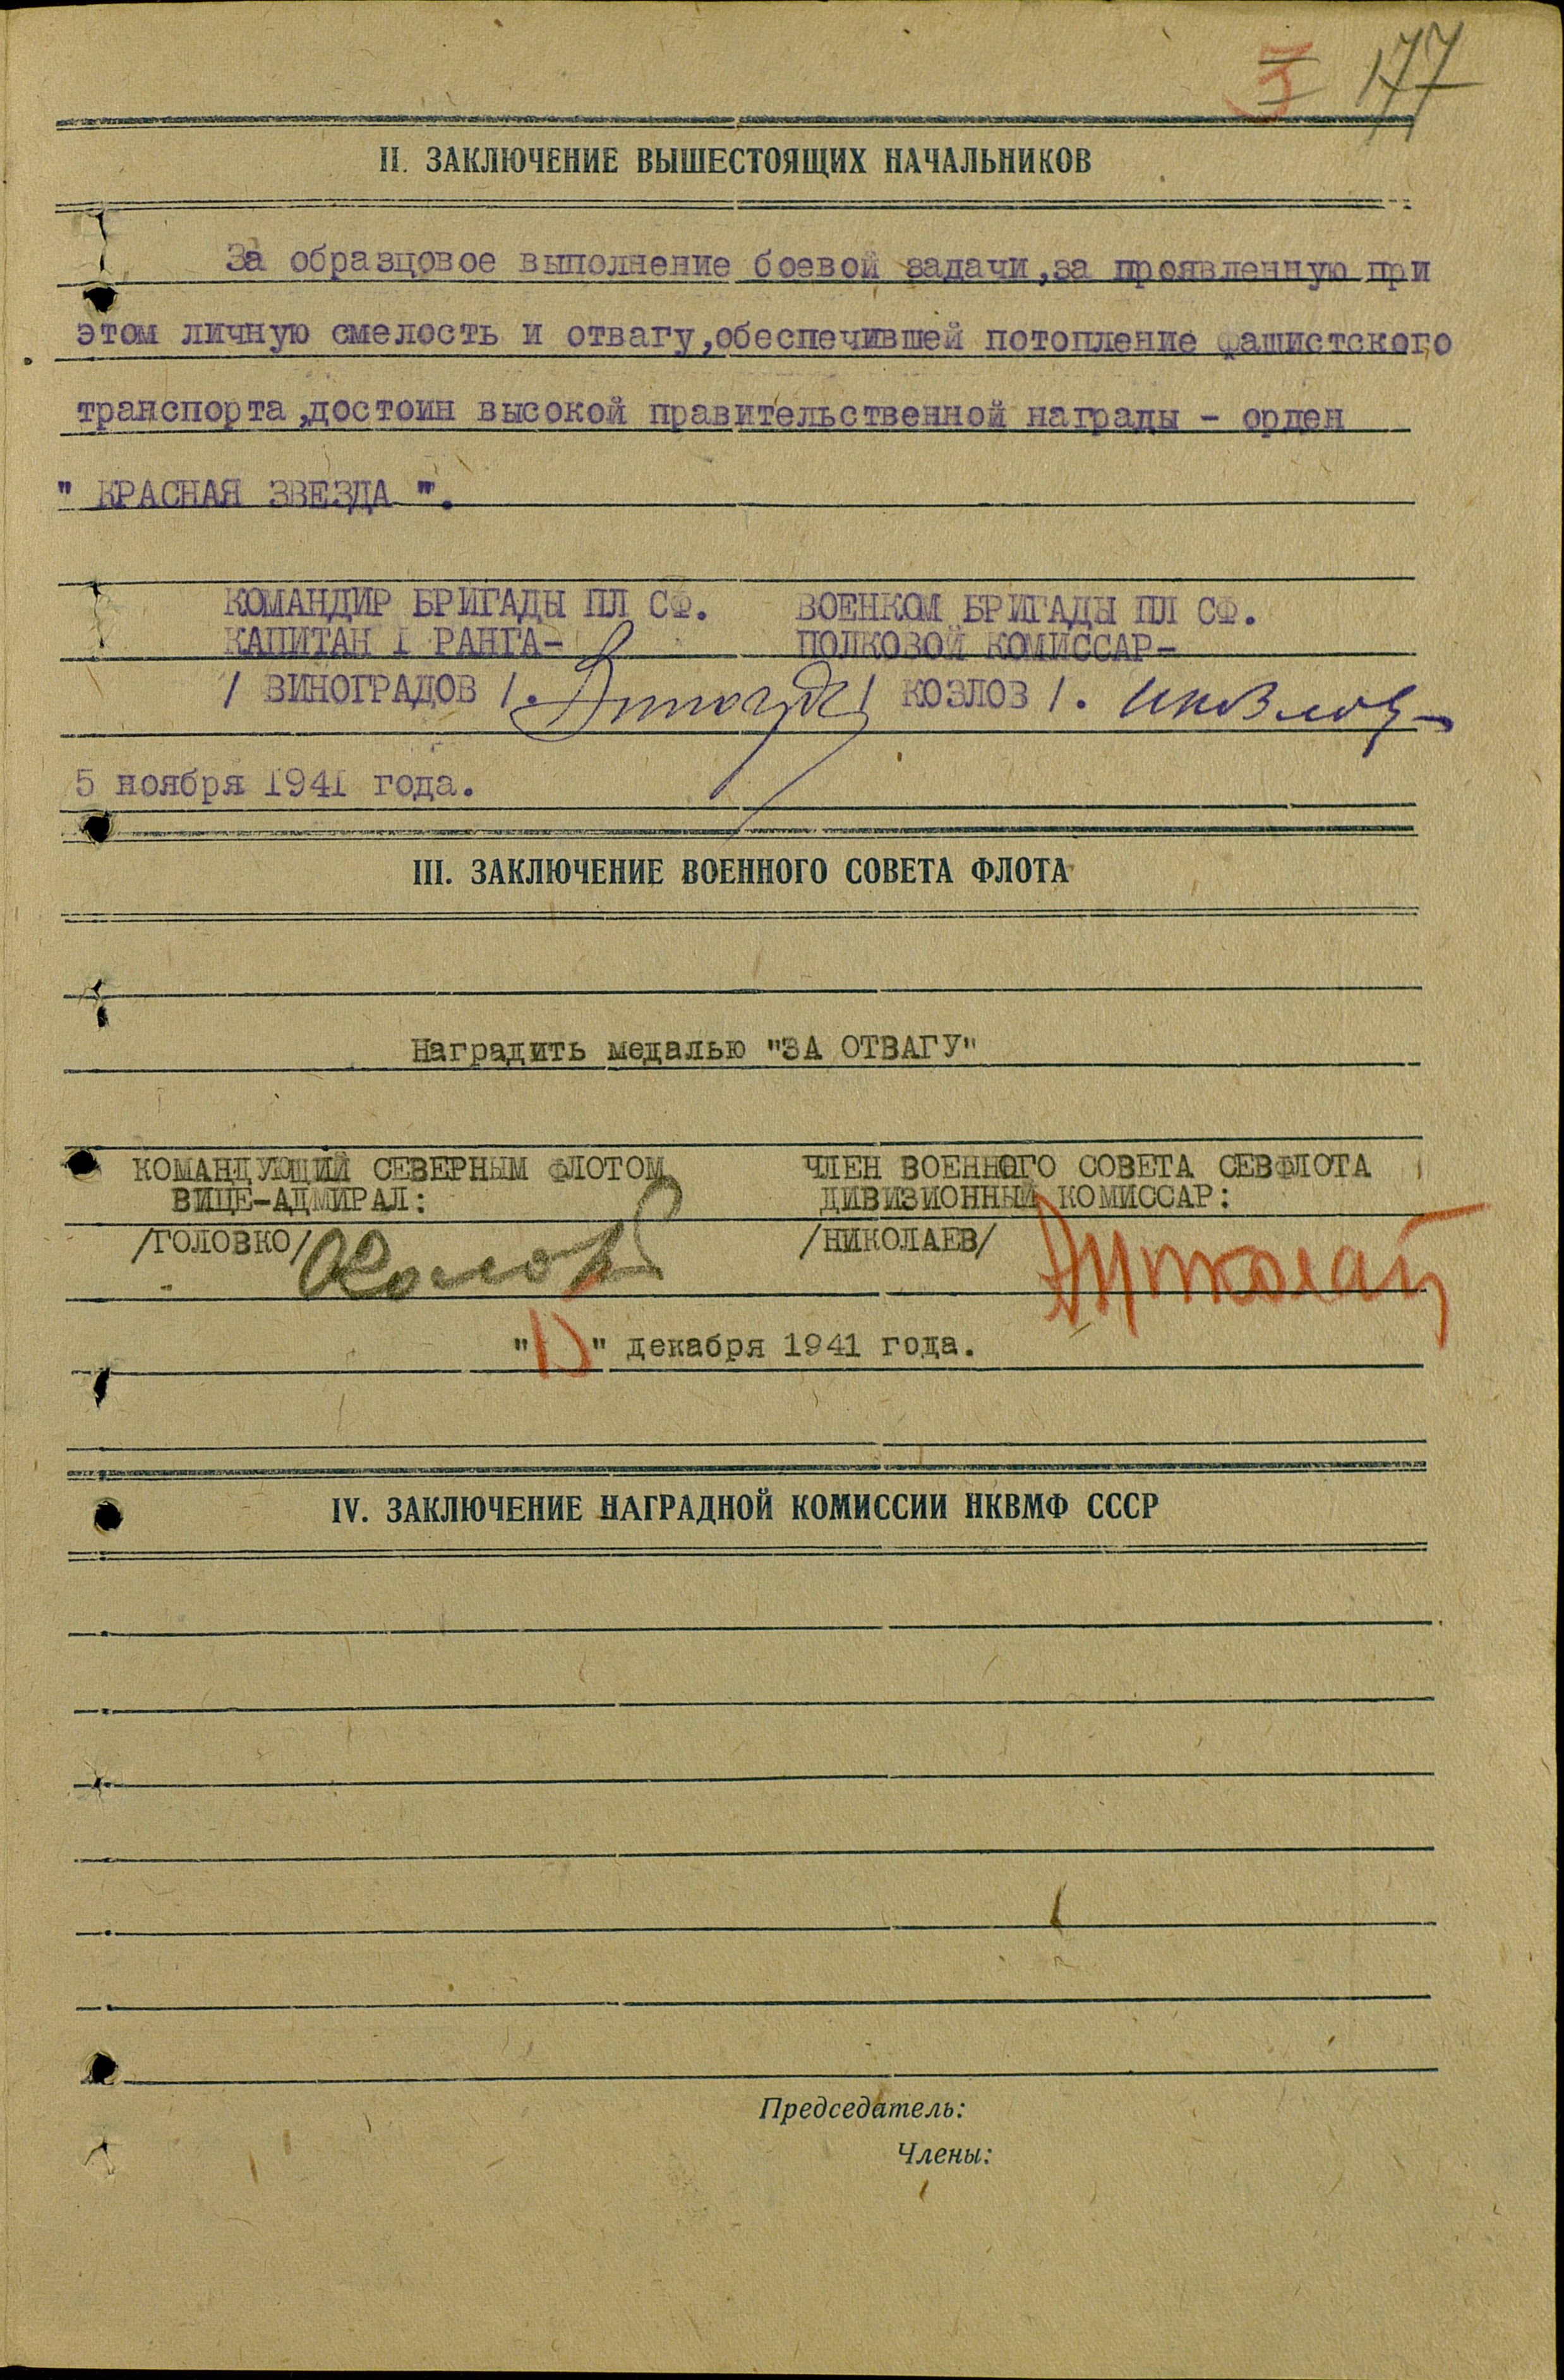 177
II. ЗАКЛЮЧЕНИЕ ВЫШЕСТОЯЩИХ НАЧАЛЬНИКОВ
За образцовое выполнение боевой задачи,за проявленную при
этом личную смелость и отвагу,обеспечившей потопление фашистского
транспорта,достоин высокой правительственной награды - орден
" КРАСНАЯ ЗВЕЗДА ".
КОМАНДИР БРИГАДЫ ПЛ СФ. ВОЕНКОМ БРИГАДЫ ПЛ СФ.
КАПИТАН I РАНГА- ПОЛКОВОЙ КОМИССАР-
/ ВИНОГРАДОВ /. / КОЗЛОВ /.
5 ноября 1941 года.
III. ЗАКЛЮЧЕНИЕ ВОЕННОГО СОВЕТА ФЛОТА
Наградить медалью "ЗА ОТВАГУ"
КОМАНДУЮЩИЙ СЕВЕРНЫМ ФЛОТОМ ЧЛЕН ВОЕННОГО СОВЕТА СЕВФЛОТА
ВИЦЕ-АДМИРАЛ: ДИВИЗИОННЫЙ КОМИССАР:
/ГОЛОВКО/ /НИКОЛАЕВ/
" " декабря 1941 года.
IV. ЗАКЛЮЧЕНИЕ НАГРАДНОЙ КОМИССИИ НКВМФ СССР
Председатель:
Члены: